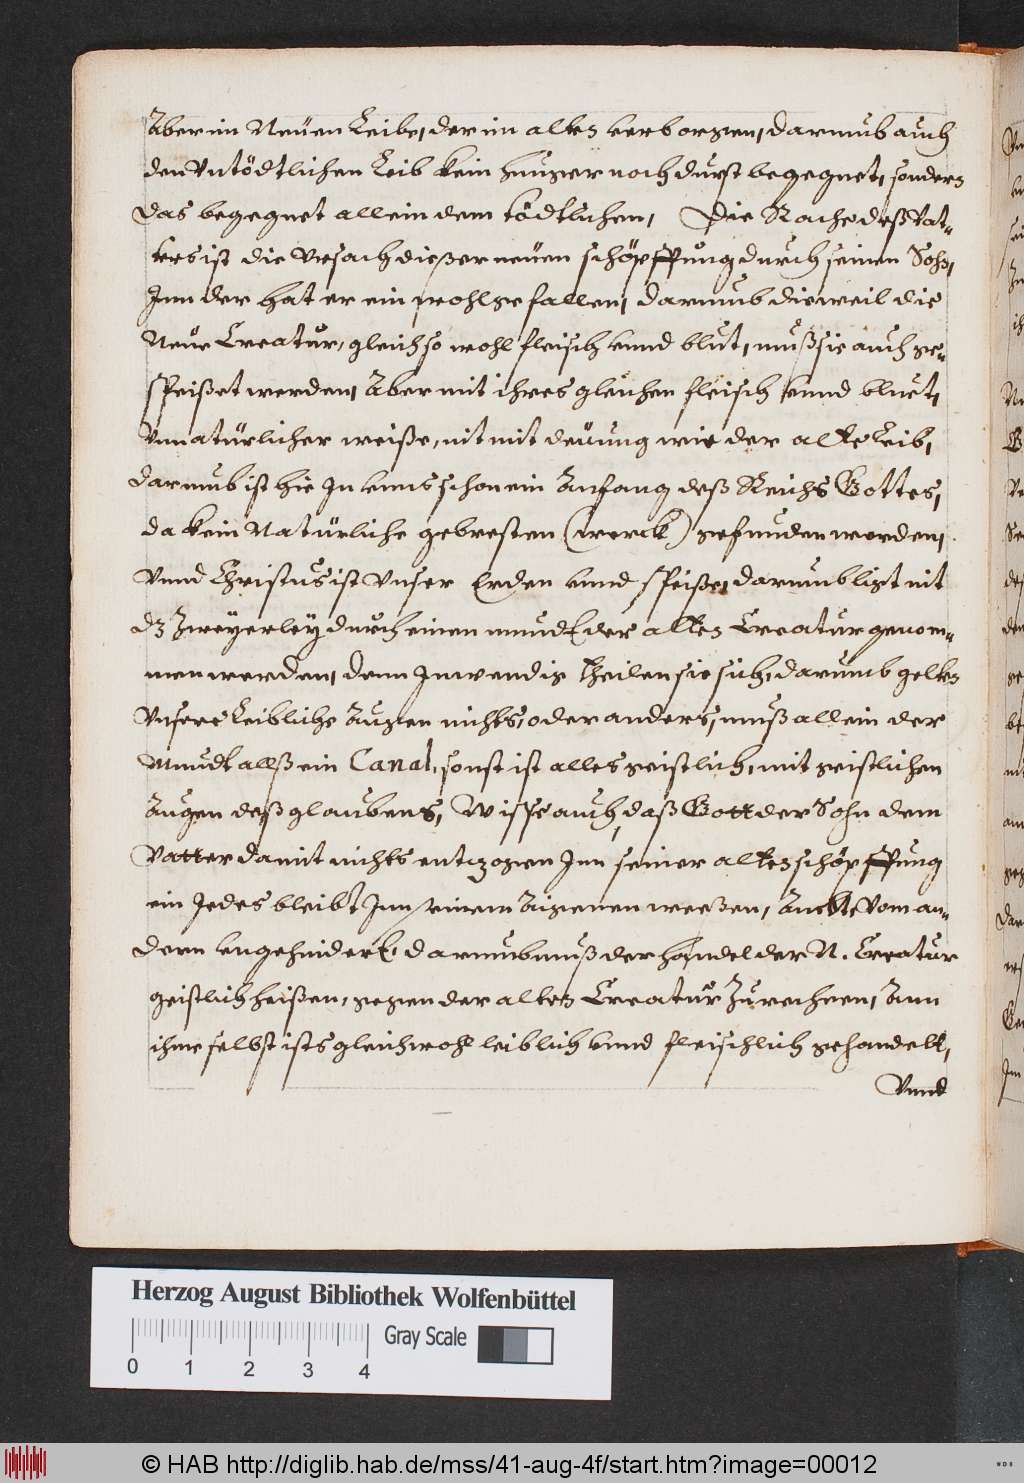 Aber im Neüen Leibe, der im alten verborgen, darumb auch
den Vntödtlichen Leib kein hunger noch durst begegnet, sondern
das begegnet allein dem tödtlichen, Die Rache deß Vat-
ters ist die Vrsach dießer neüen schöpffung durch seinen Sohn,
Inn der hat er ein wohlgefallen, darumb dieweil die
Neüe Creatur, gleich so wohl fleisch vnnd blut, muß sie auch ge-
speißet werden, Aber mit ihres gleichen fleisch vnnd bluet,
Vnnatürlicher weiße, nit mit deüung wie der alte Leib,
darumb ist hie In vnns schon ein Anfang deß Reichs Gottes,
da kein Natürliche gebresten (werck) gefunden werden,
Vnnd Christus ist Vnser Erden vnnd speiße, darumb ligt nit
dz Zweyerley durch einen mundt der alten Creatur genom-
men werden, denn Inwendig theilen sie sich, darumb gelten
Vnsere Leibliche Augen nichts, oder anders, muß allein der
Mundt allß ein Canal, sonst ist alles geistlich, mit geistlichen
Augen deß glaubens, Wisse auch, daß Gott der Sohn dem
Vatter damit nichts entzogen Inn seiner alten schöpffung
ein Jedes bleibt Inn seinem Aigenen weeßen, Auch vom an-
dern vngehindert, darumb muß der handel der N. Creatur
geistlich heißen, gegen der alten Creatur Zurechnen, Ann
ihme selbst ists gleichwohl leiblich vnnd fleischlich gehandelt,
Vnnd
Herzog August Bibliothek Wolfenbüttel
Gray Scale
0 1 2 3 4
© HAB http://diglib.hab.de/mss/41-aug-4f/start.htm?image=00012